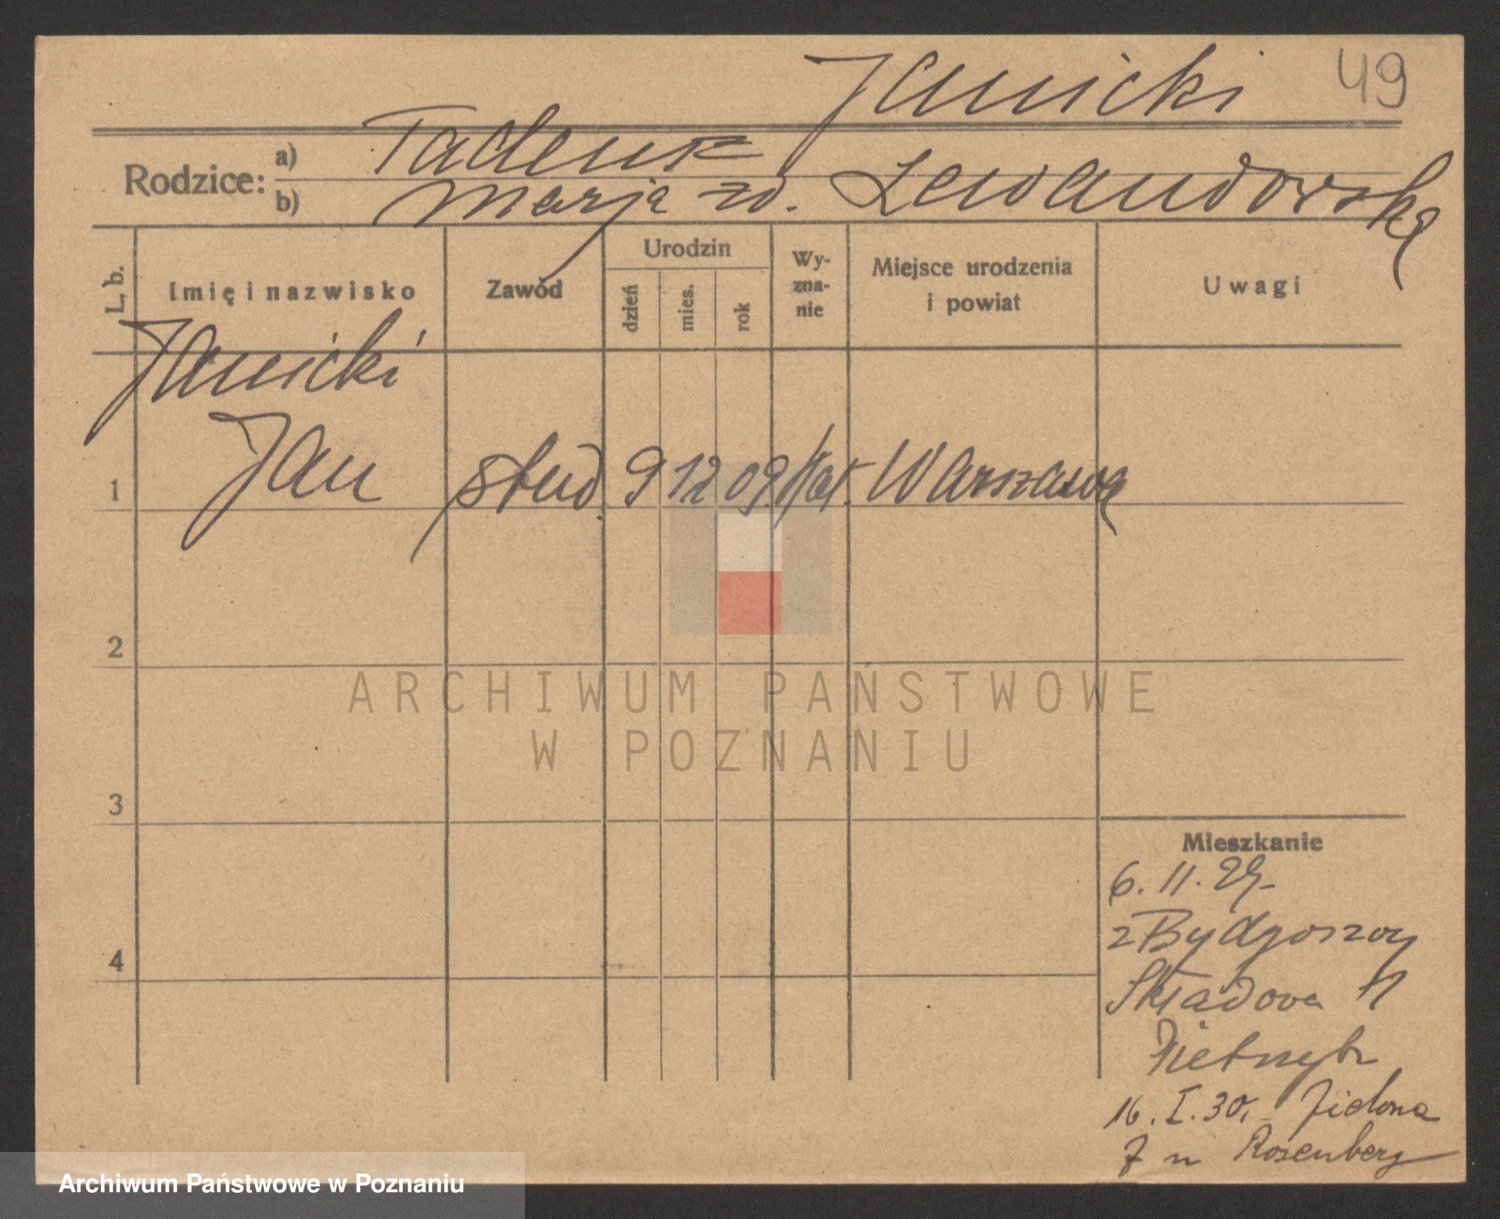 Janicki 49
Rodzice: a) Tadeusz
b) Marja zd. Lewandowska
L. b. Imię i nazwisko Zawód Urodzin dzień mies. rok Wy-zna-nie Miejsce urodzenia i powiat Uwagi
Janicki
1 Jan stud. 9 12 09. kat. Warszawa
2
3
4
Mieszkanie
6. 11. 29.
z Bydgoszczy
Składowa
16. I. 30. Zielona
7 u Rosenberg
ARCHIWUM PAŃSTWOWE
W POZNANIU
Archiwum Państwowe w Poznaniu